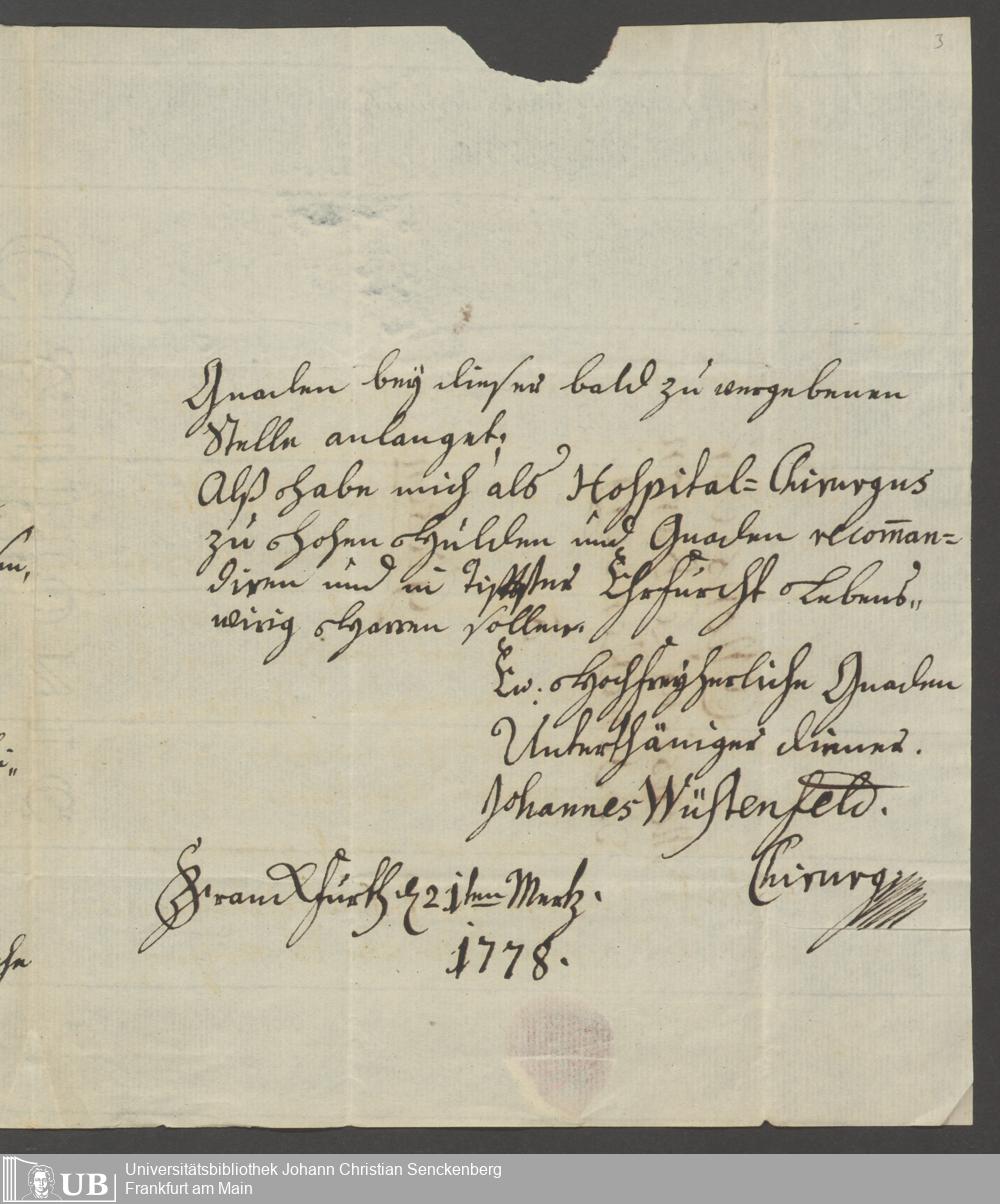 3
Gnaden bey dieser bald zu vergebenen
Stelle anlanget;
Alß habe mich als Hospital= Chirurgus
zu hohen Hulden und Gnaden recom̄an=
diren und in Ehrfurcht Lebens„
wirig Harren sollen.
Ew. Hochfreyherliche Gnaden
Unterthäniger diener.
Johannes Wüstenfeld.
Chirurg:
Franckfurth d 21ten Mertz.
1778.
UB
Universitätsbibliothek Johann Christian Senckenberg
Frankfurt am Main